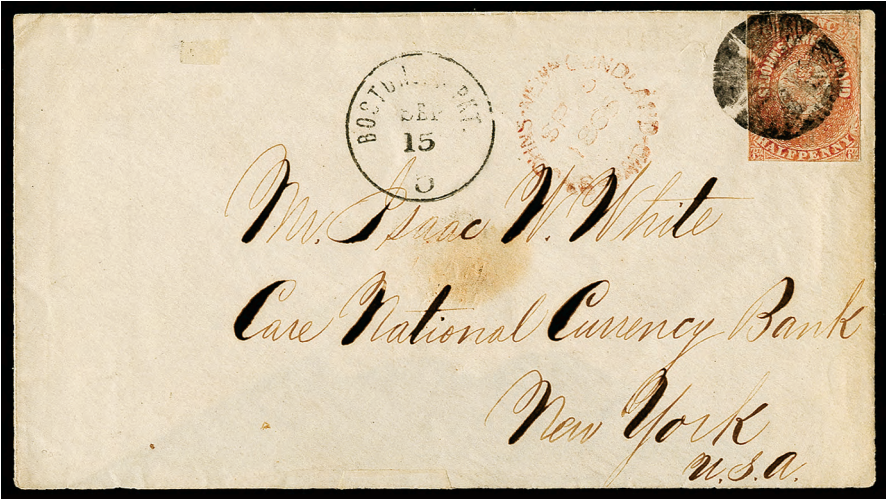 BOSTON BR. PKT.
SEP
15
5
ST. JOHNS NEWFOUNDLAND
ST. JOHN'S NEWFOUNDLAND
HALFPENNY
Mr. Isaac W. White
Care National Currency Bank
New York
U.S.A.